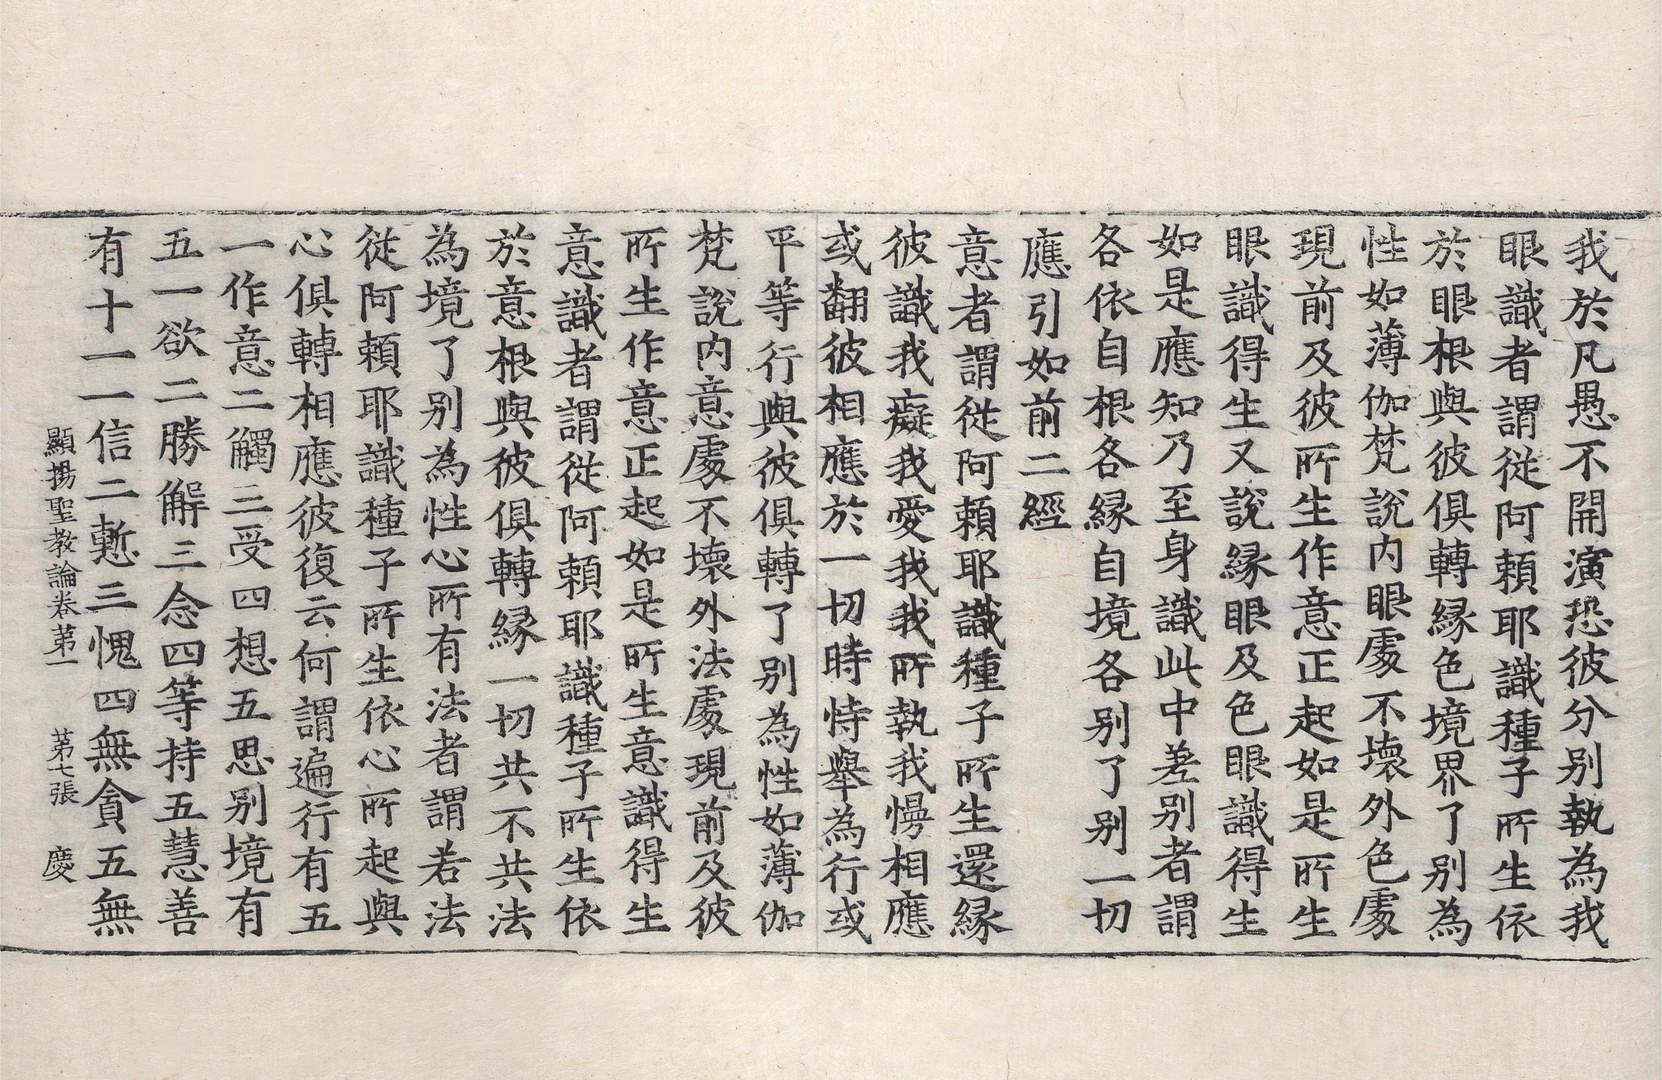 我於凡愚不開演恐彼分别執為我
眼識者謂従阿頼耶識種子所生依
於眼根與彼俱轉縁色境界了别為
性如薄伽梵說内眼䖏不壞外色䖏
現前及彼所生作意正起如是所生
眼識得生又說縁眼及色眼識得生
如是應知乃至身識此中差别者謂
各依自根各縁自境各别了别一切
應引如前二經
意者謂従阿頼耶識種子所生還縁
彼識我癡我愛我我所執我慢相應
或翻彼相應於一切時恃舉為行或
平等行與彼俱轉了别為性如薄伽
梵說内意䖏不壞外法䖏現前及彼
所生作意正起如是所生意識得生
意識者謂従阿頼耶識種子所生依
於意根與彼俱轉縁一切共不共法
為境了别為性心所有法者謂若法
従阿頼耶識種子所生依心所起與
心俱轉相應彼復云何謂遍行有五
一作意二觸三受四想五思别境有
五一欲二勝解三念四等持五慧善
有十一一信二慙三愧四無貪五無
顯揚聖教論卷苐一 苐七張 慶